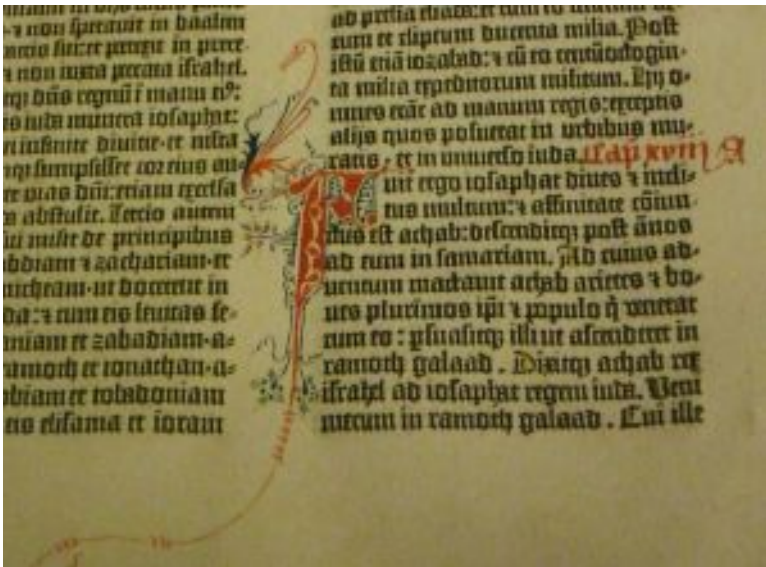 ⁊ non sperauit in baalim
non iuxta peccata israhel.
dn̄s regnū ī manu eiꝰ:
iuda munera iosaphat:
infinite diuicie·et
sumpsisset cor eius au-
vias dn̄i: etiam excelsa
abstulit. Tercio autem
misit de principibus
⁊ zachariam·et
micheam·ut docerent in
⁊ cum eis leuitas se-
et zabadiam·a-
et ionathan·a-
et tobadoniam
eis elisama et ioram
cum et clipeum ducenta milia. Post
istū etiā iozabad: ⁊ cū eo centūoctogin-
ta milia expeditorum militum. Hij o-
mnes erāt ad manum regis: exceptis
alijs quos posuerat in urbibus mu-
ratis · et in uniuerso iuda. Cap̄ xviij A
Fuit ergo iosaphat diues ⁊ incli-
tus multum: ⁊ affinitate cōiun-
ctus est achab: descenditqʒ post ānos
ad eum in samariam. Ad cuius ad-
uentum mactauit achab arietes ⁊ bo-
ues plurimos ip̄i ⁊ populo q̄ venerat
cum eo: ꝑsuasitqʒ illi ut ascenderet in
ramoth galaad. Dixitqʒ achab rex
israhel ad iosaphat regem iuda. Veni
mecum in ramoth galaad. Cui ille